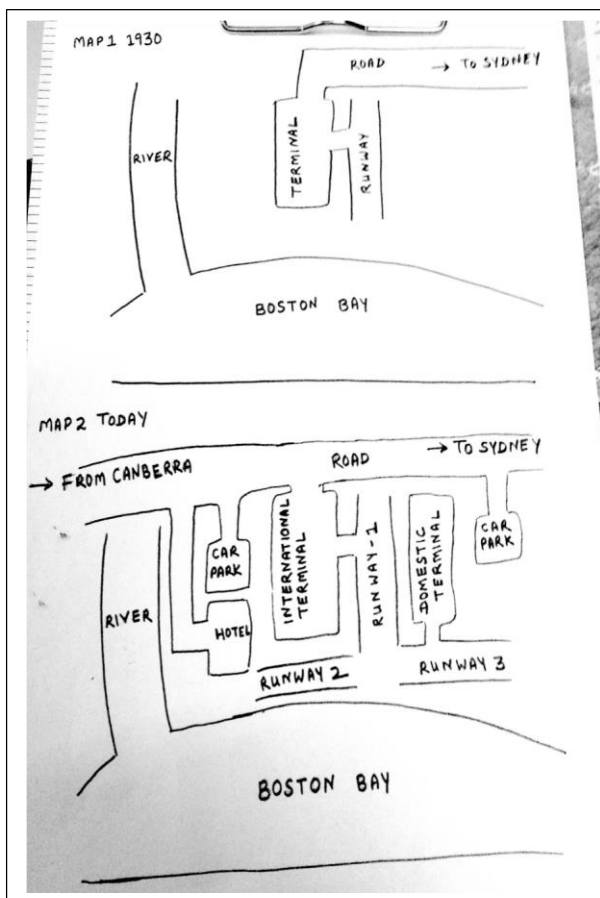 MAP 1 1930
ROAD → TO SYDNEY
RIVER
TERMINAL
RUNWAY
BOSTON BAY
MAP 2 TODAY
→ FROM CANBERRA
ROAD
→ TO SYDNEY
CAR
PARK
INTERNATIONAL
TERMINAL
RUNWAY-1
DOMESTIC
TERMINAL
CAR
PARK
RIVER
HOTEL
RUNWAY 2
RUNWAY 3
BOSTON BAY